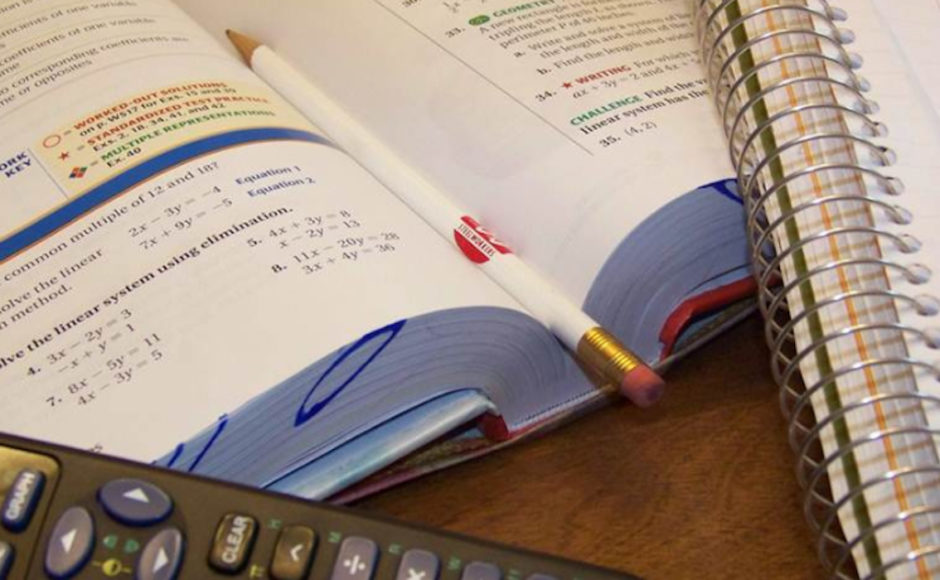 of one variable
coefficients of one variable
corresponding coefficients are
or opposites
= WORKED-OUT SOLUTIONS
for Exs. 15 and 39
★ = STANDARDIZED TEST PRACTICE
Exs. 2, 18, 34, 41, and 42
= MULTIPLE REPRESENTATIONS
Ex. 40
KEY
common multiple of 12 and 18?
olve the linear
n method.
2x − 3y = −4 Equation 1
7x + 9y = −5 Equation 2
lve the linear system using elimination.
4. 3x − 2y = 3
−x + y = 1
5. 4x + 3y = 8
x − 2y = 13
7. 8x − 5y = 11
4x − 3y = 5
8. 11x − 20y = 28
3x + 4y = 36
33. GEOMETRY
A new rectangle is
perimeter P of 46 inches.
a. Write and solve a system of
the length and width of
b. Find the length and width
34. ★ WRITING For which
ax + 3y = 2 and 4x +
CHALLENGE Find the
linear system has the
35. (4, 2)
STEELWORKERS
GRAPH
CLEAR
÷
×
^
H
M
R
W
π